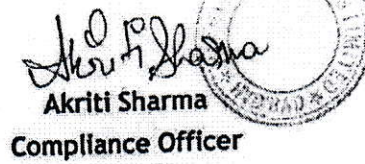 Akriti Sharma
Akriti Sharma
Compliance Officer